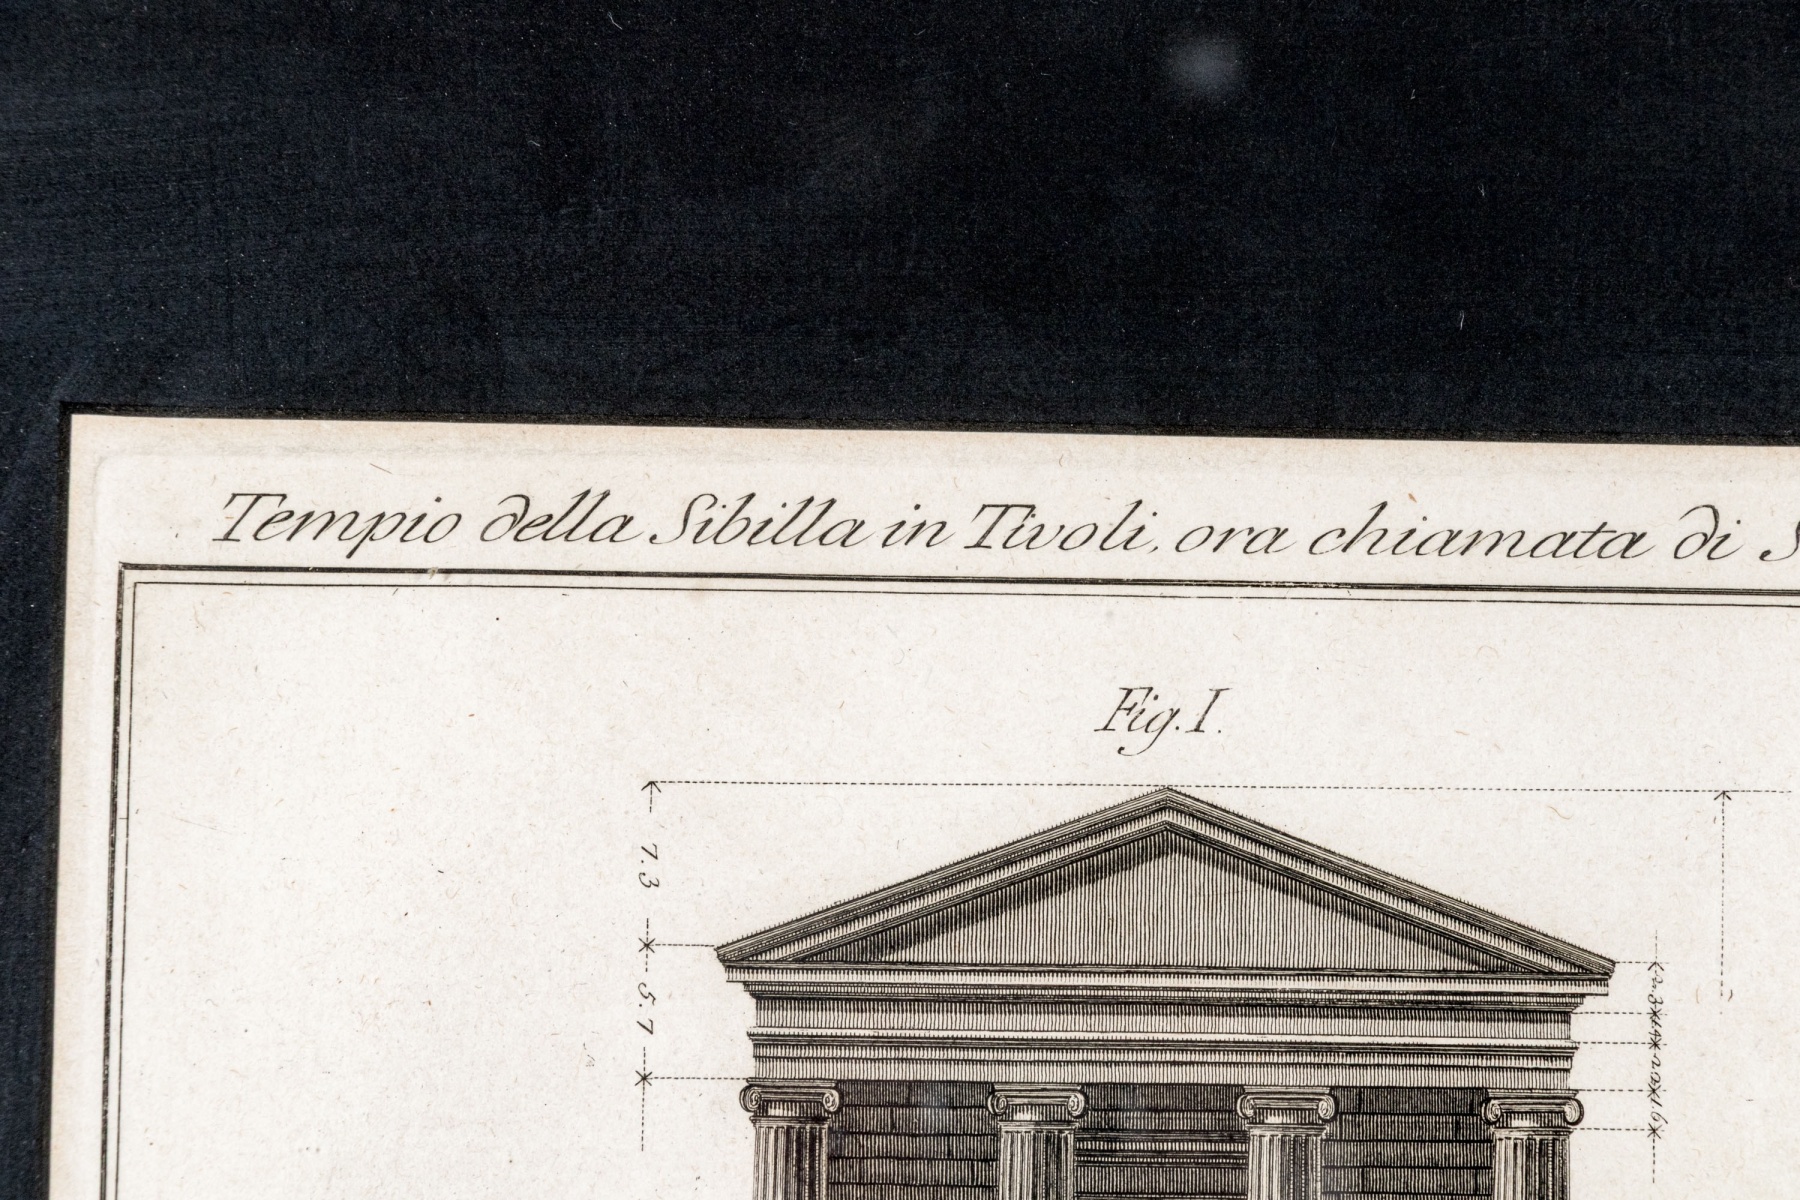 Tempio della Sibilla in Tivoli, ora chiamata di
Fig. I.
7.3
5.7